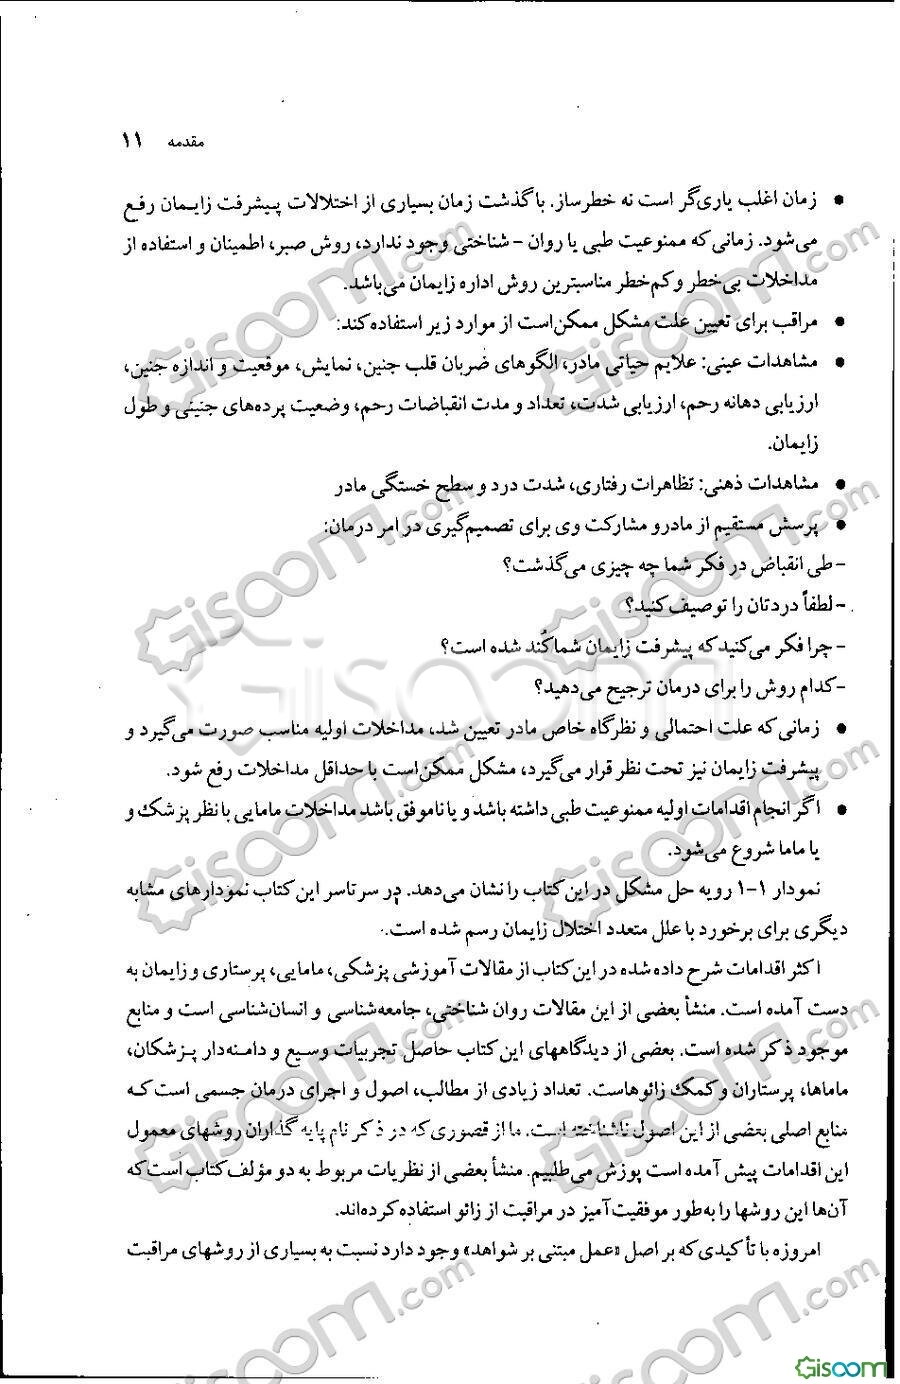 مقدمه ۱۱
● زمان اغلب یاری‌گر است نه خطرساز. با گذشت زمان بسیاری از اختلالات پیشرفت زایمان رفع
می‌شود. زمانی که ممنوعیت طبی یا روان - شناختی وجود ندارد، روش صبر، اطمینان و استفاده از
مداخلات بی‌خطر و کم‌خطر مناسبترین روش اداره زایمان می‌باشد.
● مراقب برای تعیین علت مشکل ممکن است از موارد زیر استفاده کند:
● مشاهدات عینی: علایم حیاتی مادر، الگوهای ضربان قلب جنین، نمایش، موقعیت و اندازه جنین،
ارزیابی دهانه رحم، ارزیابی شدت، تعداد و مدت انقباضات رحم، وضعیت پرده‌های جنینی و طول
زایمان.
● مشاهدات ذهنی: تظاهرات رفتاری، شدت درد و سطح خستگی مادر
● پرسش مستقیم از مادر و مشارکت وی برای تصمیم‌گیری در امر درمان:
- طی انقباض در فکر شما چه چیزی می‌گذشت؟
- لطفاً دردتان را توصیف کنید؟
- چرا فکر می‌کنید که پیشرفت زایمان شما کُند شده است؟
- کدام روش را برای درمان ترجیح می‌دهید؟
● زمانی که علت احتمالی و نظرگاه خاص مادر تعیین شد، مداخلات اولیه مناسب صورت می‌گیرد و
پیشرفت زایمان نیز تحت نظر قرار می‌گیرد، مشکل ممکن است با حداقل مداخلات رفع شود.
● اگر انجام اقدامات اولیه ممنوعیت طبی داشته باشد و یا ناموفق باشد مداخلات مامایی با نظر پزشک و
یا ماما شروع می‌شود.
نمودار ۱-۱ رویه حل مشکل در این کتاب را نشان می‌دهد. در سرتاسر این کتاب نمودارهای مشابه
دیگری برای برخورد با علل متعدد اختلال زایمان رسم شده است.
اکثر اقدامات شرح داده شده در این کتاب از مقالات آموزشی پزشکی، مامایی، پرستاری و زایمان به
دست آمده است. منشأ بعضی از این مقالات روان شناختی، جامعه‌شناسی و انسان‌شناسی است و منابع
موجود ذکر شده است. بعضی از دیدگاههای این کتاب حاصل تجربیات وسیع و دامنه‌دار پزشکان،
ماماها، پرستاران و کمک زائوهاست. تعداد زیادی از مطالب، اصول و اجرای درمان جسمی است که
منابع اصلی بعضی از این اصول ناشناخته است. ما از قصوری که در ذکر نام پایه گذاران روشهای معمول
این اقدامات پیش آمده است پوزش می‌طلبیم. منشأ بعضی از نظریات مربوط به دو مؤلف کتاب است که
آن‌ها این روشها را به‌طور موفقیت‌آمیز در مراقبت از زائو استفاده کرده‌اند.
امروزه با تأکیدی که بر اصل «عمل مبتنی بر شواهد» وجود دارد نسبت به بسیاری از روشهای مراقبت
Gisoom